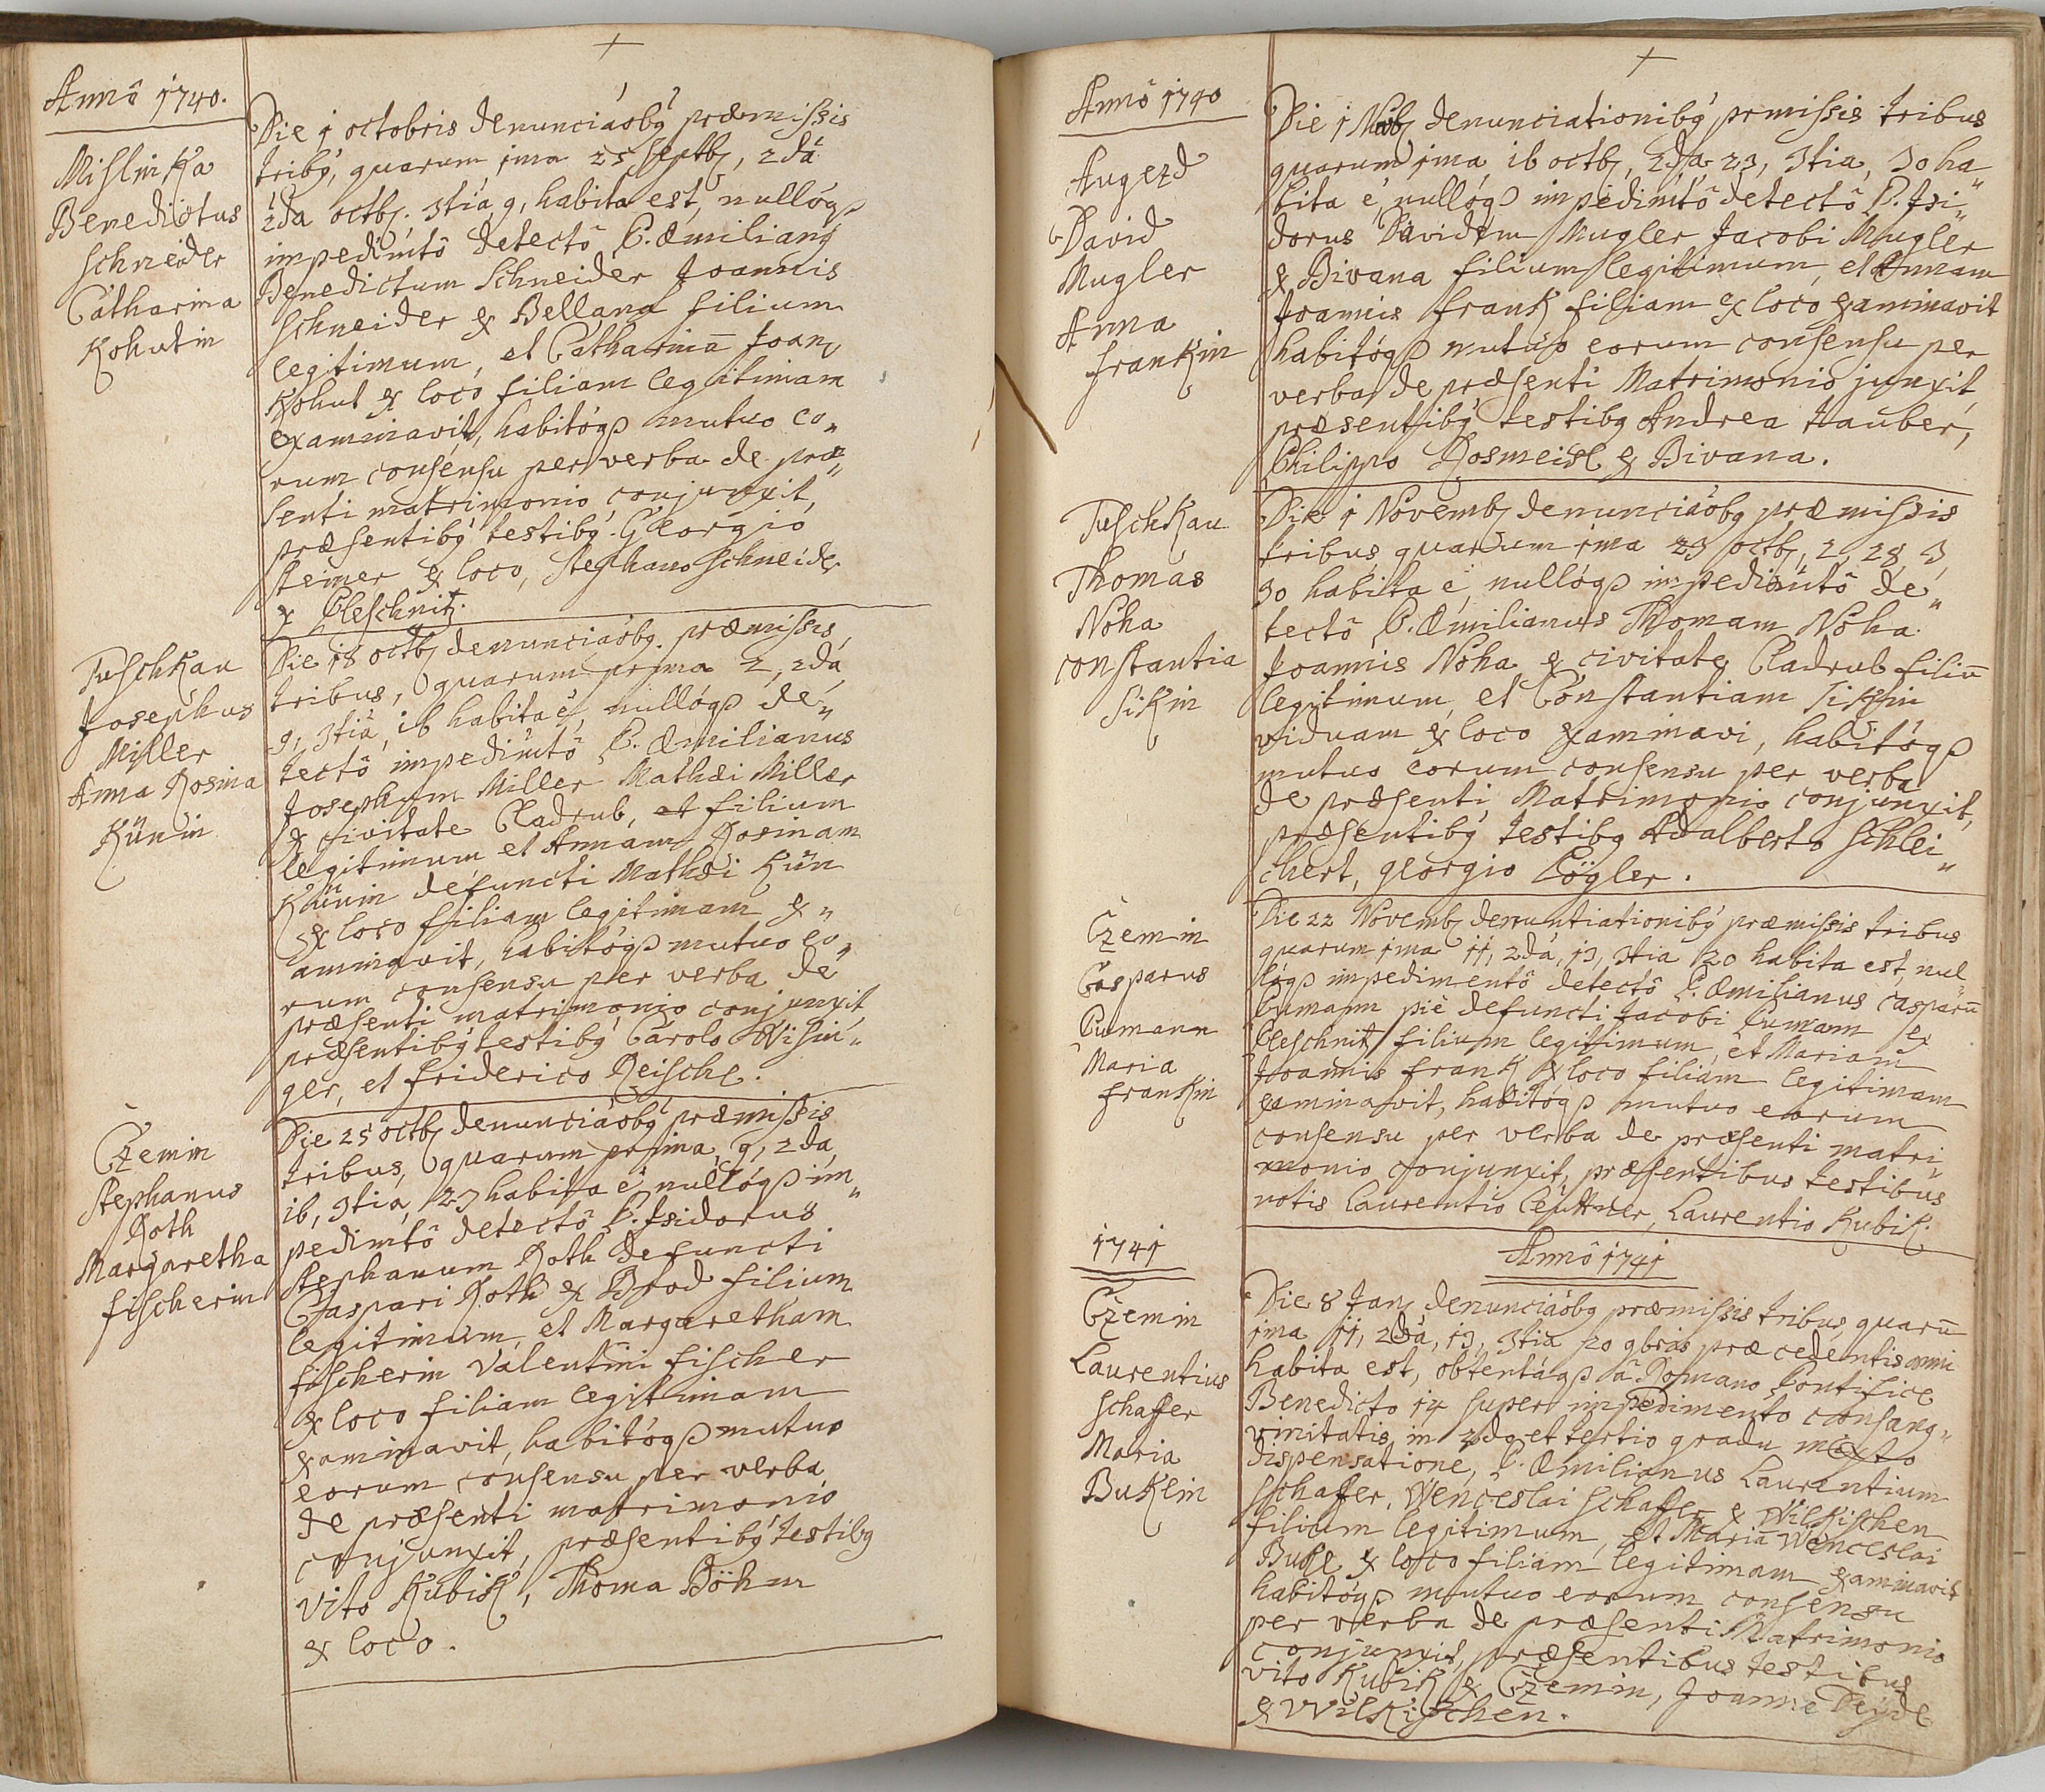 Annô 1740.
Mislinka
Benedictus
Schneider
Catharina
Kohutin
Die 1 octobris denunciâobg præmissis
tribg, quarum 1ma 25 Septb, 2dâ
2da octb. 3tiâ 9, habita est, nullôqz
impedimtô detectô P. Æmiliang
Benedictum Schneider Joannis
Schneider ex Bellana filium
legitimum, et Catharinā Joan
Kohut ex loco filiam legitimam
examinavit, habitôqz mutuo eo„
rum consensu per verba de præ„
senti matrimonio conjunxit,
præsentibg testibg. Georgio
Steiner ex loco, Stephano Schneider
ex Pleschnitz.
Tuschkau
Josephus
Miller
Anna Rosina
Künin
Die 18 octb denunciâobg. præmissis
tribus, quarum prima 2, 2dâ
9, 3tiâ, 16 habita ê, nullôqz de„
tectô impedimtô P. Æmilianus
Josephum Miller Mathæi Miller
ex civitate Cladrub, et filium
legitimum et Annam Rosinam
Künin defuncti Mathæi Kün
ex loco filiam legitimam ex„
aminavit, habitôqz mutuo eo„
rum consensu per verba de
præsenti matrimonio conjunxit,
præsentibg testibg Carolo Wisin„
ger, et Friderico Reischl.
Czemin
Stephanus
Roth
Margaretha
Fischerin
Die 25 octb denunciâobg præmissis
tribus, quarum prima, 9, 2da,
16, 3tia, 23 habita ê nullôqz im„
pedimtô detectô P. Isidorus
Stephanum Roth defuncti
Caspari Roth ex Brod filium
legitimum, et Margaretham
Fischerin Valentini Fischer
ex loco filiam legitimam
examinavit, habitôqz mutuo
eorum consensu per verba
de præsenti matrimonio
conjunxit, præsentibg testibg
Vito Kubik, Thoma Böhm
ex loco.
Annô 1740
Augezd
David
Mugler
Anna
Frankin
Die 1 Novb denunciationibg præmissis tribus
quarum 1ma, 16 octb, 2da 23, 3tia, 30 ha„
bita ê, nullôqz impedimtô detectô P. Isi„
dorus Davidem Mugler Jacobi Mugler
ex Bivana filium legitimum, et Annam
Joannis Frank filiam ex loco examinavit
habitôqz mutuo eorum consensu per
verba de præsenti Matrimonio junxit,
præsentibg testibg Andrea Hauber,
Philippo Rosmeisl ex Bivana.
Tuschkau
Thomas
Noha
Constantia
Sikin
Die 1 Novemb denunciâobg præmissis
tribus quarum 1ma 23 octb, 2, 28, 3,
30 habita ê, nullôqz impedimtô de„
tectô P. Æmilianus Thomam Noha
Joannis Noha ex civitate Cladrub filiū
legitimum, et Constantiam Sikin
viduam ex loco examinavi, habitôqz
mutuo eorum consensu per verba
de præsenti Matrimonio conjunxit,
præsentibg testibg Adalberto Schlei„
chert, Georgio Pögler.
Czemin
Casparus
Pumann
Maria
Frankin
Die 22 Novemb denuntiationibg præmissis tribus
quarum 1ma 11, 2dâ, 13, 3tia 20 habita est, nul„
lôqz impedimentô detectô P. Æmilianus Casparū
Pumann piê defuncti Jacobi Pumann ex
Pleschnitz filium legitimum, et Mariam
Joannis Frank ex loco filiam legitimam
examinavit, habitôqz mutuo eorum
consensu per verba de præsenti matri„
monio conjunxit, præsentibus testibus
notis Laurentio Leuttner, Laurentio Kubik.
1741
Annô 1741
Czemin
Laurentius
Schaffer
Maria
Buklin
Die 8 Jan, denunciâobg præmissis tribus, quarū
1ma 11, 2dâ, 13, 3tia 20 9bris præcedentis anni
habita est, obtentâqz â Romano Pontifice
Benedicto 14 super impedimento consang„
vinitatis in 2do et tertio gradu mixto
dispensatione, P. Æmilianus Laurentium
Schaffer, Wenceslai Schaffer ex Wilkischen
filium legitimum, et Mariā Wenceslai
Bukl ex loco filiam legitimam examinavit
habitôqz mutuo eorum consensu
per verba de præsenti Matrimonio
conjunxit, præsentibus testibus
Vito Kubik ex Czemin, Joanne Deÿdl
ex Wilkischen.